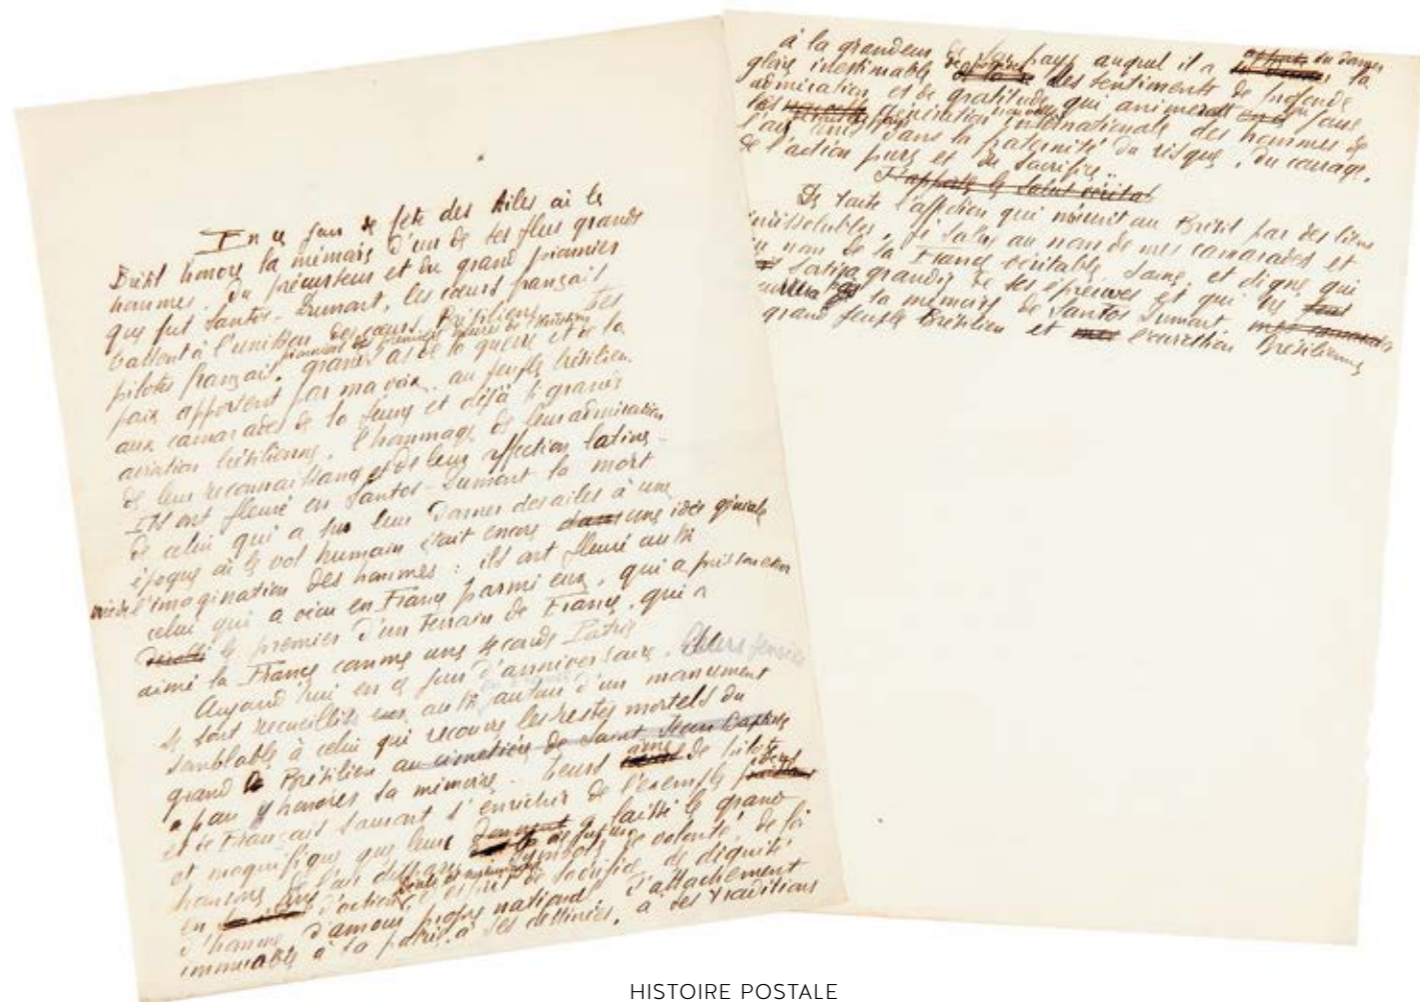 En ce jour de fête des Ailes où le
Brésil honore la mémoire d'un de ses plus grands
hommes, du précurseur et du grand pionnier
que fut Santos-Dumont, les cœurs français
battent à l'unisson des cœurs Brésiliens. Les
pilotes français, pionniers des premières heures de
grands as de la guerre et de la
paix apportent par ma voix, au peuple brésilien
aux camarades de la jeune et déjà si grande
aviation brésilienne, l'hommage de leur admiration
de leur reconnaissance et de leur affection latine.
Ils ont pleuré en Santos-Dumont la mort
de celui qui a su leur donner des ailes à une
époque où le vol humain était encore dans une idée géniale
née de l'imagination des hommes : ils ont pleuré aussi
celui qui a vécu en France parmi eux, qui a pris son essor
le premier d'un terrain de France, qui a
aimé la France comme une seconde Patrie
Aujourd'hui en ce jour d'anniversaire, leurs pensées
se sont recueillies aussi autour d'un monument
semblable à celui qui recouvre les restes mortels du
grand Brésilien au cimetière de Saint Jean Baptiste
pour y honorer sa mémoire. Leurs âmes de pilotes
et de Français savent s'enrichir de l'exemple
et magnifique que leur a laissé le grand
de l'air symbole de volonté, de foi
en d'action, d'esprit de sacrifice, de dignité
d'homme, d'amour propre national, d'attachement
immuable à sa patrie, à ses destinées, à ses traditions
à la grandeur de son pays auquel il a la
gloire inestimable des sentiments de profonde
admiration et de gratitude qui animeront
génération internationale des hommes de
l'air unis dans la fraternité du risque, du courage,
de l'action pure et du sacrifice.
J'apporte le salut
De toute l'affection qui m'unit au Brésil par des liens
indissolubles, je salue au nom de mes camarades et
au nom de la France véritable, saine, et digne qui
grandir de ses épreuves et qui
la mémoire de Santos Dumont
grand peuple Brésilien et l'aviation Brésilienne
HISTOIRE POSTALE